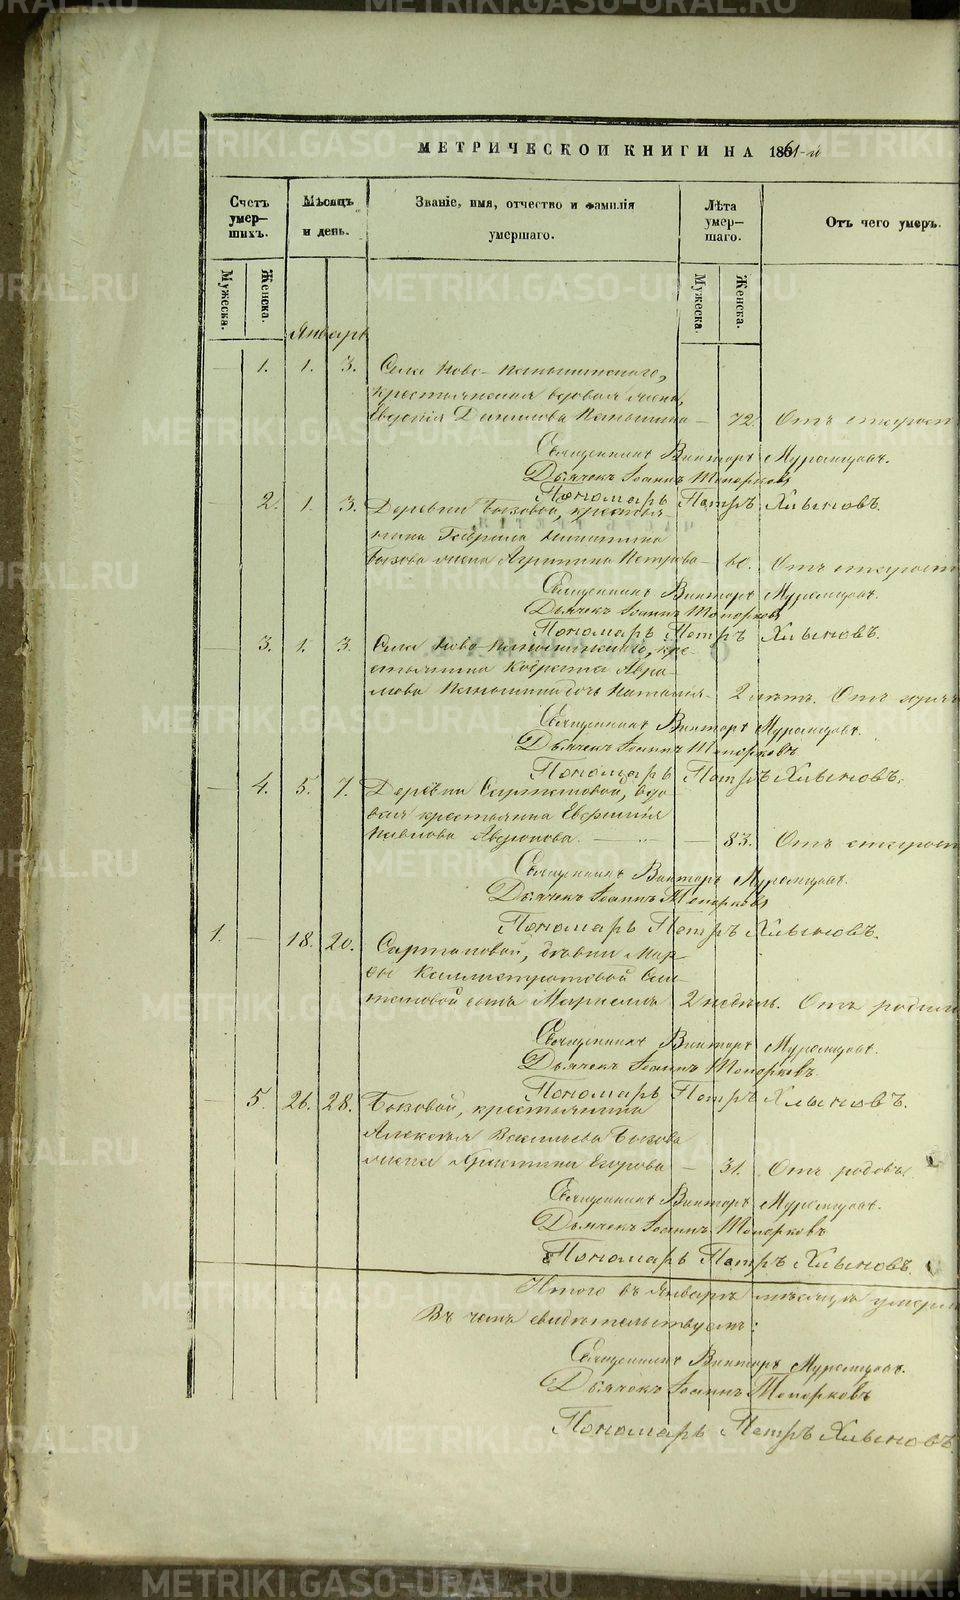 МЕТРИЧЕСКОЙ КНИГИ НА 1861-й
Счетъ умер-шихъ.
Мѣсяцъ и день.
Званіе, имя, отчество и фамилія умершаго.
Лѣта умер-шаго.
Отъ чего умеръ.
Мужеска.
Женска.
Мужеска.
Женска.
Январь
1. 1. 3. Села Ново-
крестьянская вдовая жена,
Евдокія Данилова — 72. Отъ старост
Священникъ Викторъ Муромцовъ.
Дьячекъ Іоаннъ Топорковъ
Пономарь Петръ Хлыновъ.
2. 1. 3. Деревни Быковой, крестья-
нина Гаврила Никитина
Быкова жена Агрипина Петрова — 60. Отъ старост
Священникъ Викторъ Муромцовъ.
Дьячекъ Іоаннъ Топорковъ
Пономарь Петръ Хлыновъ.
3. 1. 3. Села Ново кре-
стьянина Авра-
мова дочь Наталія — 2 лѣтъ. Отъ
Священникъ Викторъ Муромцовъ.
Дьячекъ Іоаннъ Топорковъ
Пономарь Петръ Хлыновъ.
4. 5. 7. Деревни вдо-
вая крестьянка Евфимія
Павлова — 83. Отъ старост
Священникъ Викторъ Муромцовъ.
Дьячекъ Іоаннъ Топорковъ
Пономарь Петръ Хлыновъ.
1. — 18. 20. дѣвки Мар-
Каллистратовой
сынъ 2 недѣль. Отъ родим
Священникъ Викторъ Муромцовъ.
Дьячекъ Іоаннъ Топорковъ
Пономарь Петръ Хлыновъ.
5. 26. 28. Быковой, крестьянина
Алексѣя Васильева Быкова
жена Христина Егорова — 31. Отъ родовъ
Священникъ Викторъ Муромцовъ.
Дьячекъ Іоаннъ Топорковъ
Пономарь Петръ Хлыновъ.
Итого въ Январѣ мѣсяцѣ умерло
Въ чемъ свидѣтельствуемъ:
Священникъ Викторъ Муромцовъ.
Дьячекъ Іоаннъ Топорковъ
Пономарь Петръ Хлыновъ.
METRIKI.GASO-URAL.RU